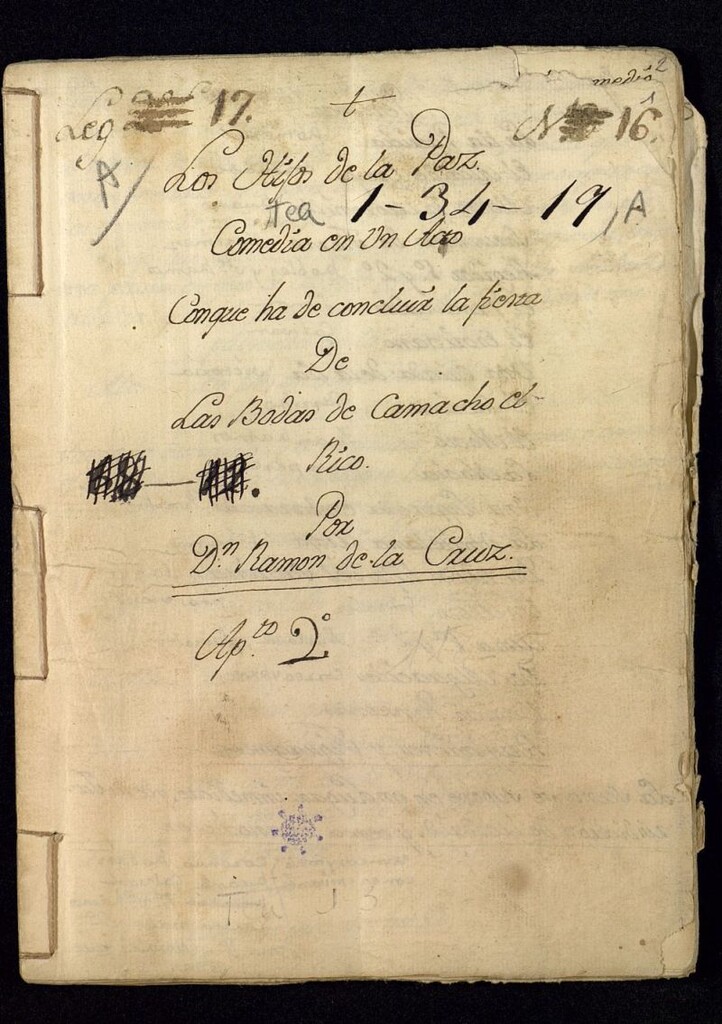 media 2
Leg 17.
N 16
Los Hijos de la Paz.
A
Tea 1-34-19, A
Comedia en Un Acto
Conque ha de concluir la fiesta
De
Las Bodas de Camacho el
Rico.
Por
D.n Ramon de la Cruz.
Ap.to 2.º
T